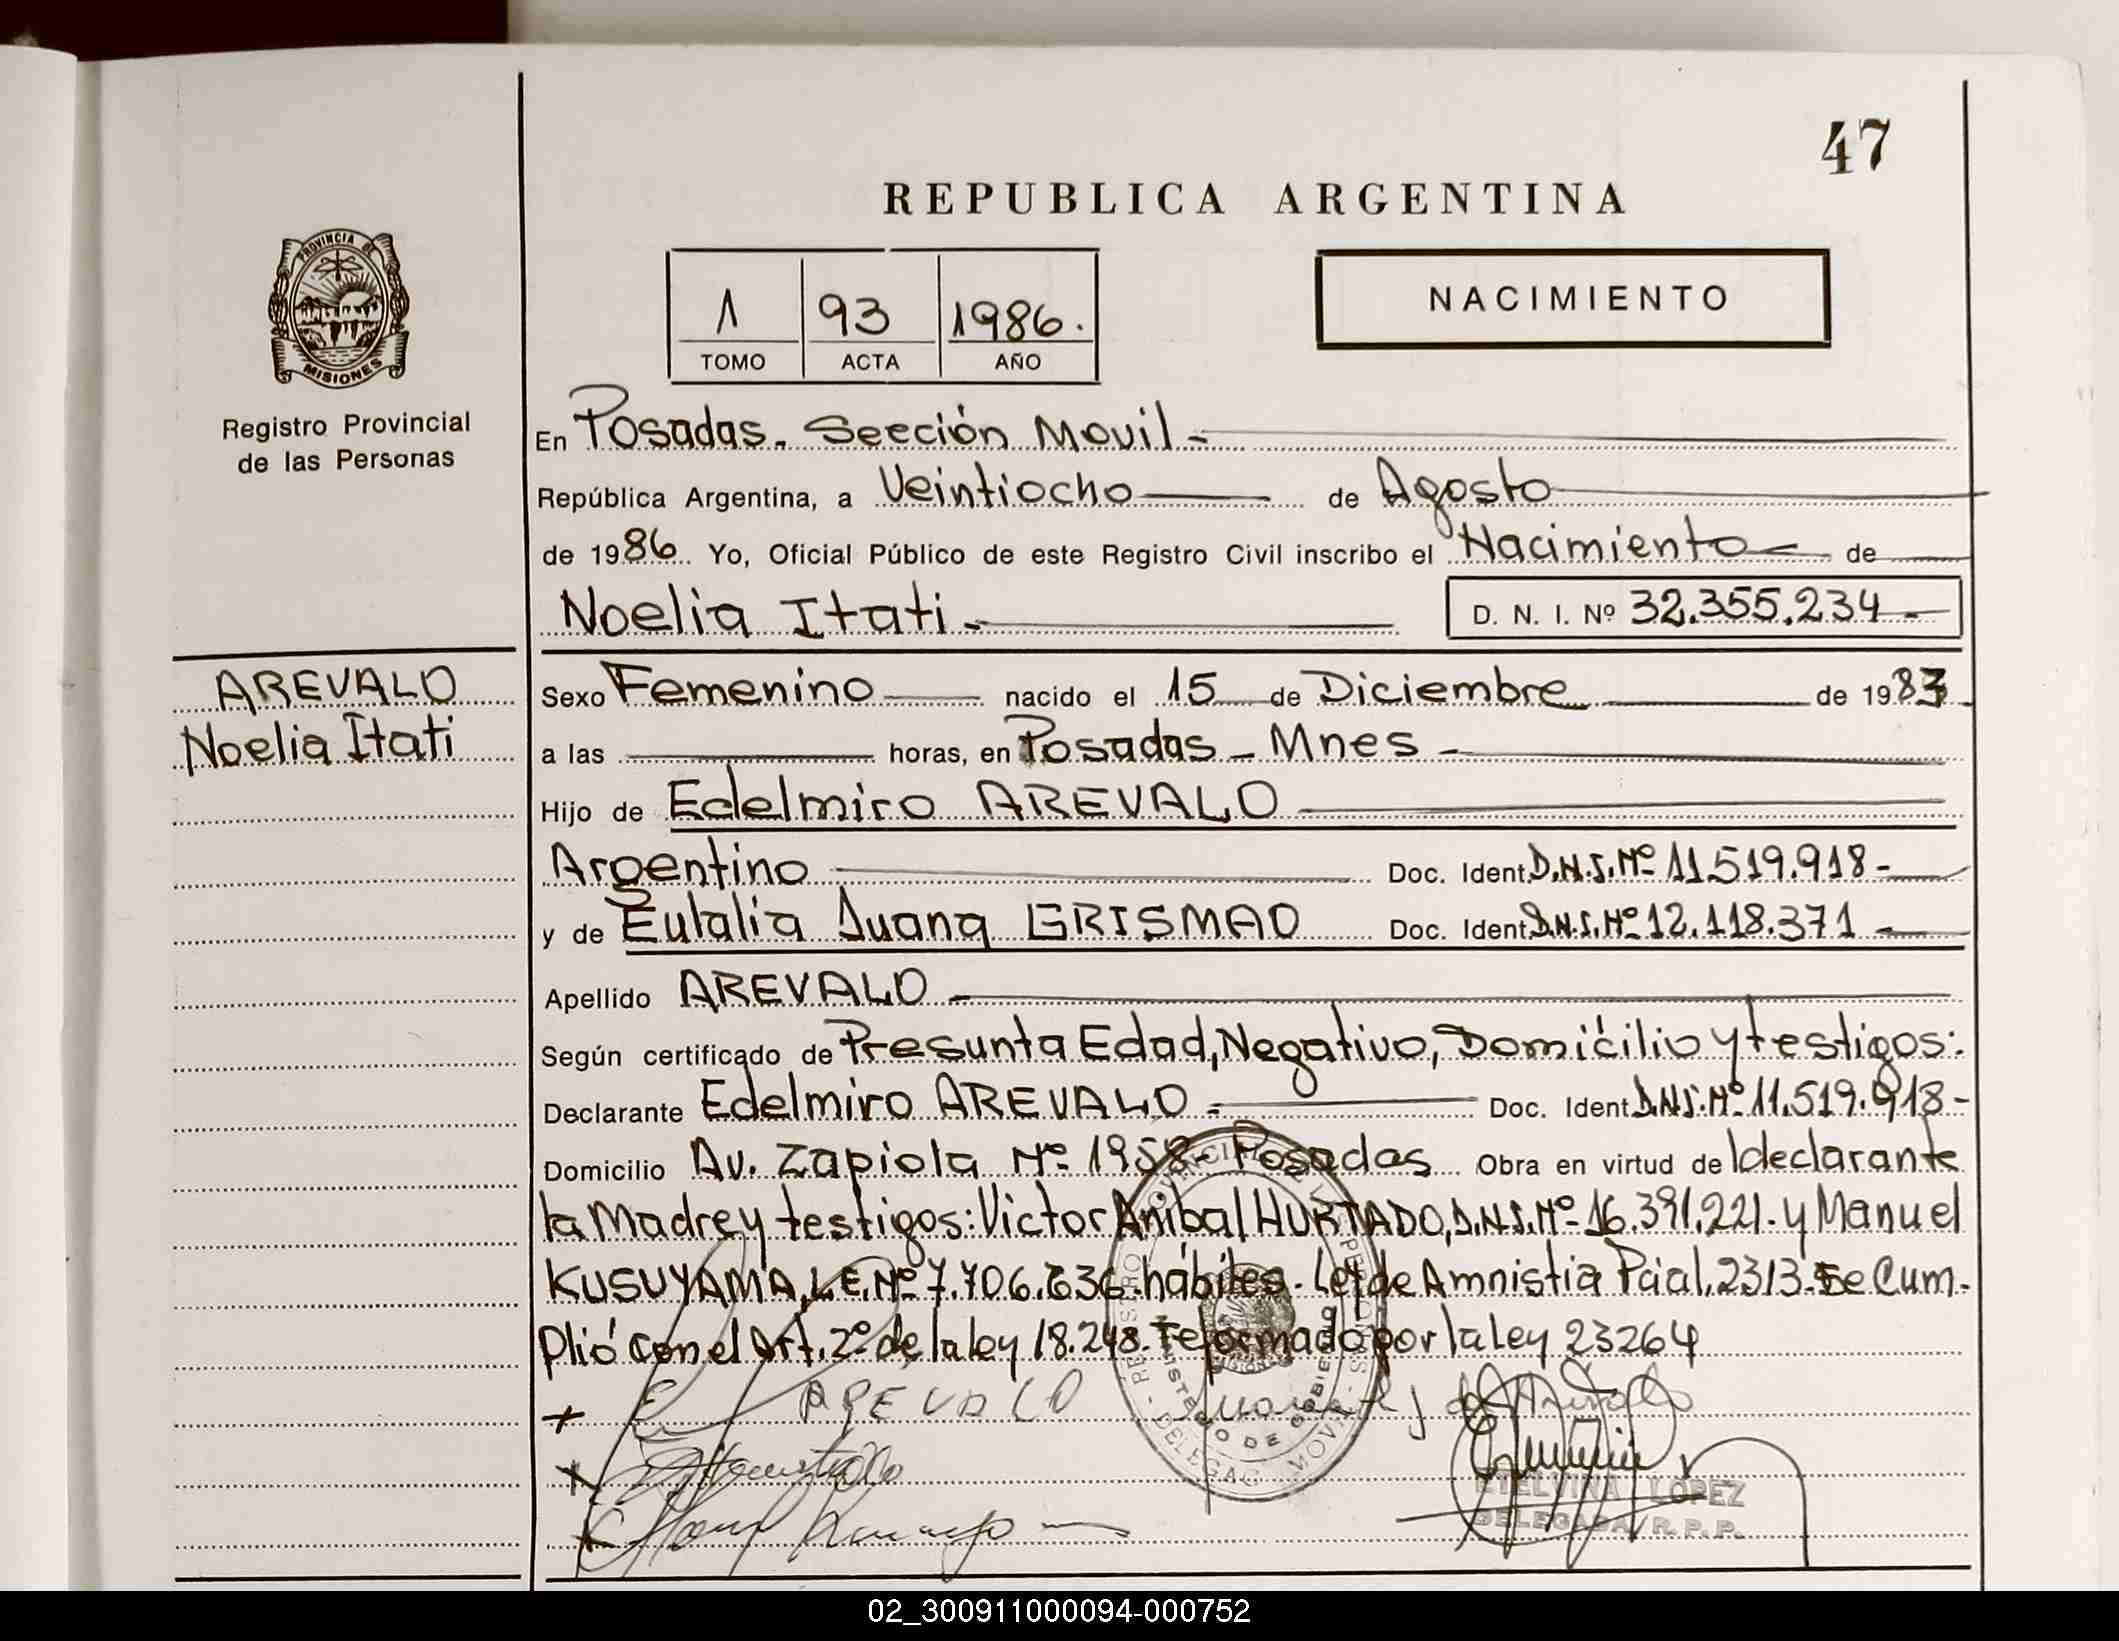 47
REPUBLICA ARGENTINA
PROVINCIA DE
MISIONES
Registro Provincial
de las Personas
1 93 1986.
TOMO ACTA AÑO
NACIMIENTO
En Posadas. Sección Movil -
República Argentina, a Veintiocho de Agosto
de 1986 Yo, Oficial Público de este Registro Civil inscribo el Nacimiento de
Noelia Itati - D. N. I. Nº 32.355.234 -
AREVALO
Noelia Itati
Sexo Femenino nacido el 15 de Diciembre de 1983
a las horas, en Posadas - Mnes -
Hijo de Edelmiro AREVALO
Argentino Doc. Ident. D.N.I. Nº 11.519.918 -
y de Eulalia Juana GRISMAO Doc. Ident. D.N.I. Nº 12.118.371
Apellido AREVALO -
Según certificado de Presunta Edad, Negativo, Domicilio y testigos:
Declarante Edelmiro AREVALO - Doc. Ident. D.N.I. Nº 11.519.918 -
Domicilio Av. Zapiola Nº 1958 - Posadas Obra en virtud de l declarante
la Madre y testigos: Victor Anibal HURTADO, D.N.I. Nº 16.391.221. y Manuel
KUSUYAMA, L.E. Nº 7.706.636. hábiles. Ley de Amnistia Pcial, 2313. Se Cum-
plió con el Art. 2º de la ley 18.248. reformado por la ley 23264
AREVALO
ETELVINA LOPEZ
DELEGADA R.P.P.
02_300911000094-000752